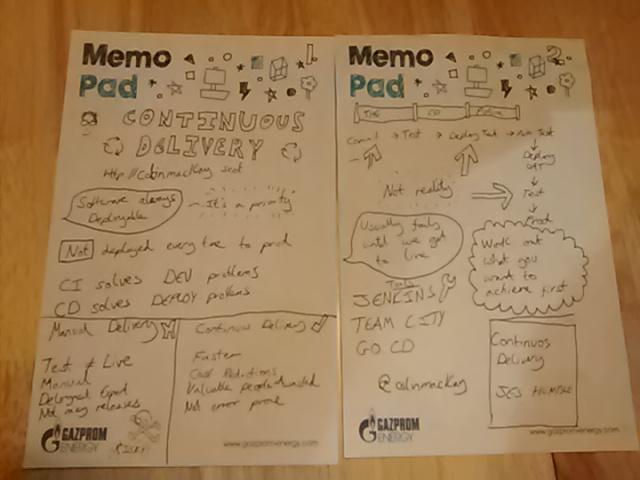 Memo
Pad
1
CONTINUOUS
DELIVERY
http://colinmackay.scot
Software always
Deployable
- It's a priority
Not deployed every time to prod
CI solves DEV problems
CD solves DEPLOY problems
Manual Delivery
Test ≠ Live
Manual
Not many releases
Continuous Delivery
Faster
Cost Reductions
Valuable people
Not error prone
GAZPROM
ENERGY
www.gazprom-energy.com
Memo
Pad
2
CD
Commit → Test → Deploy Test → Test
↓
Deploy
UAT
↓
Test
↓
Prod
Not reality
Usually fails
until we get
to live
Work out
what you
want to
achieve first
Tools
JENKINS
TEAM CITY
GO CD
@colinmackay
Continuos
Delivery
JEZ HUMBLE
GAZPROM
ENERGY
www.gazprom-energy.com